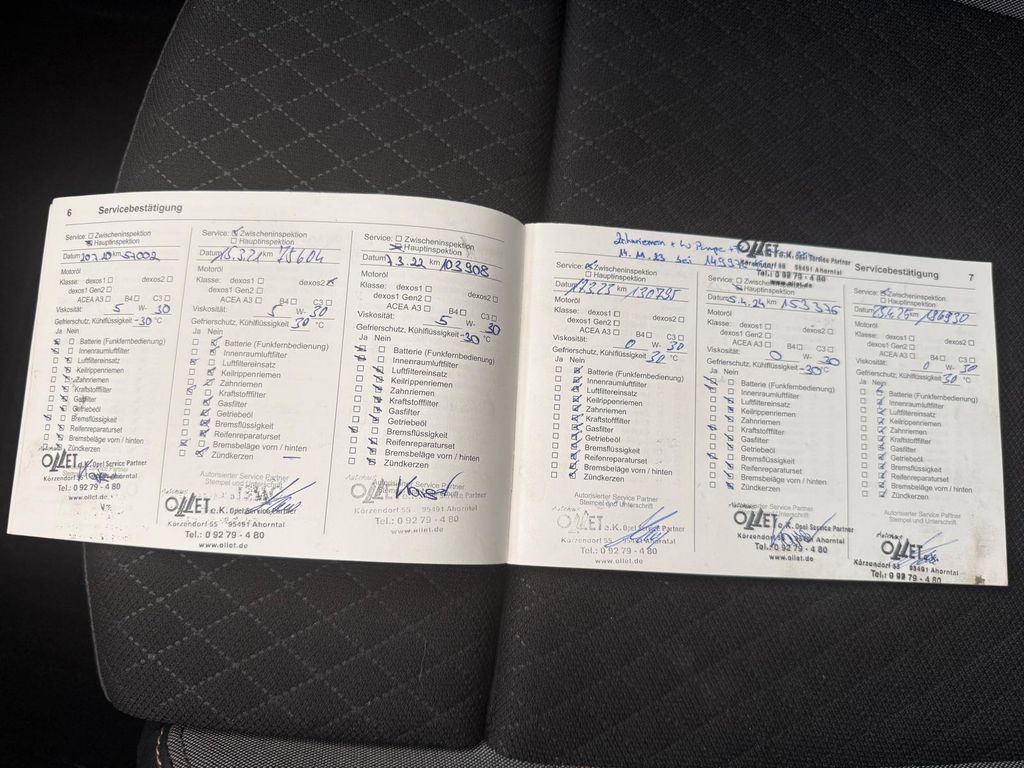 6 Servicebestätigung
Service: Zwischeninspektion
Hauptinspektion
km 57002
Motoröl
Klasse: dexos1 dexos2
dexos1 Gen2
ACEA A3 B4 C3
Viskosität: 5 W- 30
Gefrierschutz, Kühlflüssigkeit -30 °C
Ja Nein
Batterie (Funkfernbedienung)
Innenraumluftfilter
Luftfiltereinsatz
Keilrippenriemen
Zahnriemen
Kraftstofffilter
Gasfilter
Getriebeöl
Bremsflüssigkeit
Reifenreparaturset
Bremsbeläge vorn / hinten
Zündkerzen
OLLET e.K. Opel Service Partner
Körzendorf 55 95491 Ahorntal
Tel.: 0 92 79 - 4 80
www.ollet.de
Service: Zwischeninspektion
Hauptinspektion
Datum 15.3.21 km 75604
Motoröl
Klasse: dexos1 dexos2
dexos1 Gen2
ACEA A3 B4 C3
Viskosität: 5 W- 30
Gefrierschutz, Kühlflüssigkeit -30 °C
Ja Nein
Batterie (Funkfernbedienung)
Innenraumluftfilter
Luftfiltereinsatz
Keilrippenriemen
Zahnriemen
Kraftstofffilter
Gasfilter
Getriebeöl
Bremsflüssigkeit
Reifenreparaturset
Bremsbeläge vorn / hinten
Zündkerzen
Autorisierter Service Partner
Stempel und Unterschrift
OLLET e.K. Opel Service Partner
Körzendorf 55 95491 Ahorntal
Tel.: 0 92 79 - 4 80
www.ollet.de
Service: Zwischeninspektion
Hauptinspektion
Datum 7.3.22 km 103908
Motoröl
Klasse: dexos1 dexos2
dexos1 Gen2
ACEA A3 B4 C3
Viskosität: 5 W- 30
Gefrierschutz, Kühlflüssigkeit -30 °C
Ja Nein
Batterie (Funkfernbedienung)
Innenraumluftfilter
Luftfiltereinsatz
Keilrippenriemen
Zahnriemen
Kraftstofffilter
Gasfilter
Getriebeöl
Bremsflüssigkeit
Reifenreparaturset
Bremsbeläge vorn / hinten
Zündkerzen
OLLET e.K. Opel Service Partner
Körzendorf 55 95491 Ahorntal
Tel.: 0 92 79 - 4 80
www.ollet.de
Zahnriemen + W Pumpe
14.11.23 bei
OLLET e.K. Opel Service Partner
Körzendorf 55 95491 Ahorntal
Tel.: 0 92 79 - 4 80
www.ollet.de
Servicebestätigung 7
Service: Zwischeninspektion
Hauptinspektion
Datum 17.3.23 km 130795
Motoröl
Klasse: dexos1 dexos2
dexos1 Gen2
ACEA A3 B4 C3
Viskosität: 0 W- 30
Gefrierschutz, Kühlflüssigkeit 30 °C
Ja Nein
Batterie (Funkfernbedienung)
Innenraumluftfilter
Luftfiltereinsatz
Keilrippenriemen
Zahnriemen
Kraftstofffilter
Gasfilter
Getriebeöl
Bremsflüssigkeit
Reifenreparaturset
Bremsbeläge vorn / hinten
Zündkerzen
Autorisierter Service Partner
Stempel und Unterschrift
OLLET e.K. Opel Service Partner
Körzendorf 55 95491 Ahorntal
Tel.: 0 92 79 - 4 80
www.ollet.de
Service: Zwischeninspektion
Hauptinspektion
Datum 5.4.24 km 153376
Motoröl
Klasse: dexos1 dexos2
dexos1 Gen2
ACEA A3 B4 C3
Viskosität: 0 W- 30
Gefrierschutz, Kühlflüssigkeit -30 °C
Ja Nein
Batterie (Funkfernbedienung)
Innenraumluftfilter
Luftfiltereinsatz
Keilrippenriemen
Zahnriemen
Kraftstofffilter
Gasfilter
Getriebeöl
Bremsflüssigkeit
Reifenreparaturset
Bremsbeläge vorn / hinten
Zündkerzen
OLLET e.K. Opel Service Partner
Körzendorf 55 95491 Ahorntal
Tel.: 0 92 79 - 4 80
www.ollet.de
Service: Zwischeninspektion
Hauptinspektion
Datum km
Motoröl
Klasse: dexos1 dexos2
dexos1 Gen2
ACEA A3 B4 C3
Viskosität: 0 W- 30
Gefrierschutz, Kühlflüssigkeit 30 °C
Ja Nein
Batterie (Funkfernbedienung)
Innenraumluftfilter
Luftfiltereinsatz
Keilrippenriemen
Zahnriemen
Kraftstofffilter
Gasfilter
Getriebeöl
Bremsflüssigkeit
Reifenreparaturset
Bremsbeläge vorn / hinten
Zündkerzen
Autorisierter Service Partner
Stempel und Unterschrift
OLLET e.K.
Körzendorf 55 95491 Ahorntal
Tel.: 0 92 79 - 4 80